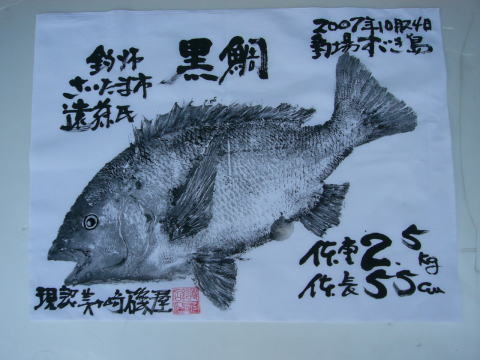 2007年10月24日
釣場すゞき島
黒鯛
釣師
さいたま市
遠藤氏
体重2.5kg
体長55cm
現認 美ヶ崎 磯屋